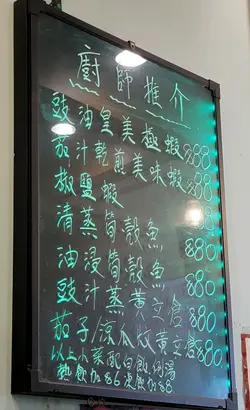 廚師推介
豉油皇美極蝦 $88
茄汁乾煎美味蝦 $88
椒鹽蝦 $88
清蒸筍殼魚 $80
油浸筍殼魚 $80
豉汁蒸黃立倉 $80
茄子/涼瓜炆黃立倉 $80
以上小菜配白飯,例湯
熱飲加$6 凍飲加$8